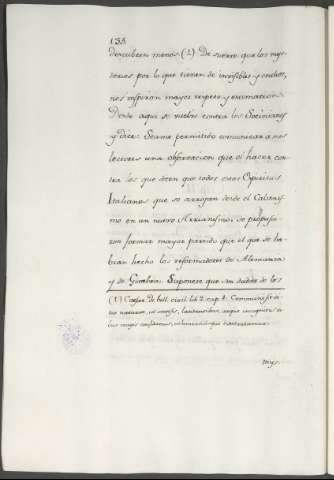 138
descubren menos (1) De suerte que los mys-
terios por lo que tienen de invisibles y ocultos,
nos inspiran mayor respeto y veneracion.
Desde aqui se vuelve contra los Socinianos
y dice: Seame permitido comunicar a mis
lectores una observacion que oi hacer con-
tra los que creen que todos estos Espiritus
Italianos que se arrojan desde el Calvinis-
mo en un nuevo Arrianismo, se propusie-
ron formar mayor partido que el que se ha-
bian hecho los reformadores de Alemania
y de Ginebra. Suponese que sin dudas de los
(1) Caesar de bell. civil. lib. 2. cap. 4. Communi fit vi-
tio naturae, ut invisis, latitantibus, atque incognitis re-
bus magis confidamus, vehementiusque exterreamur.
mys-